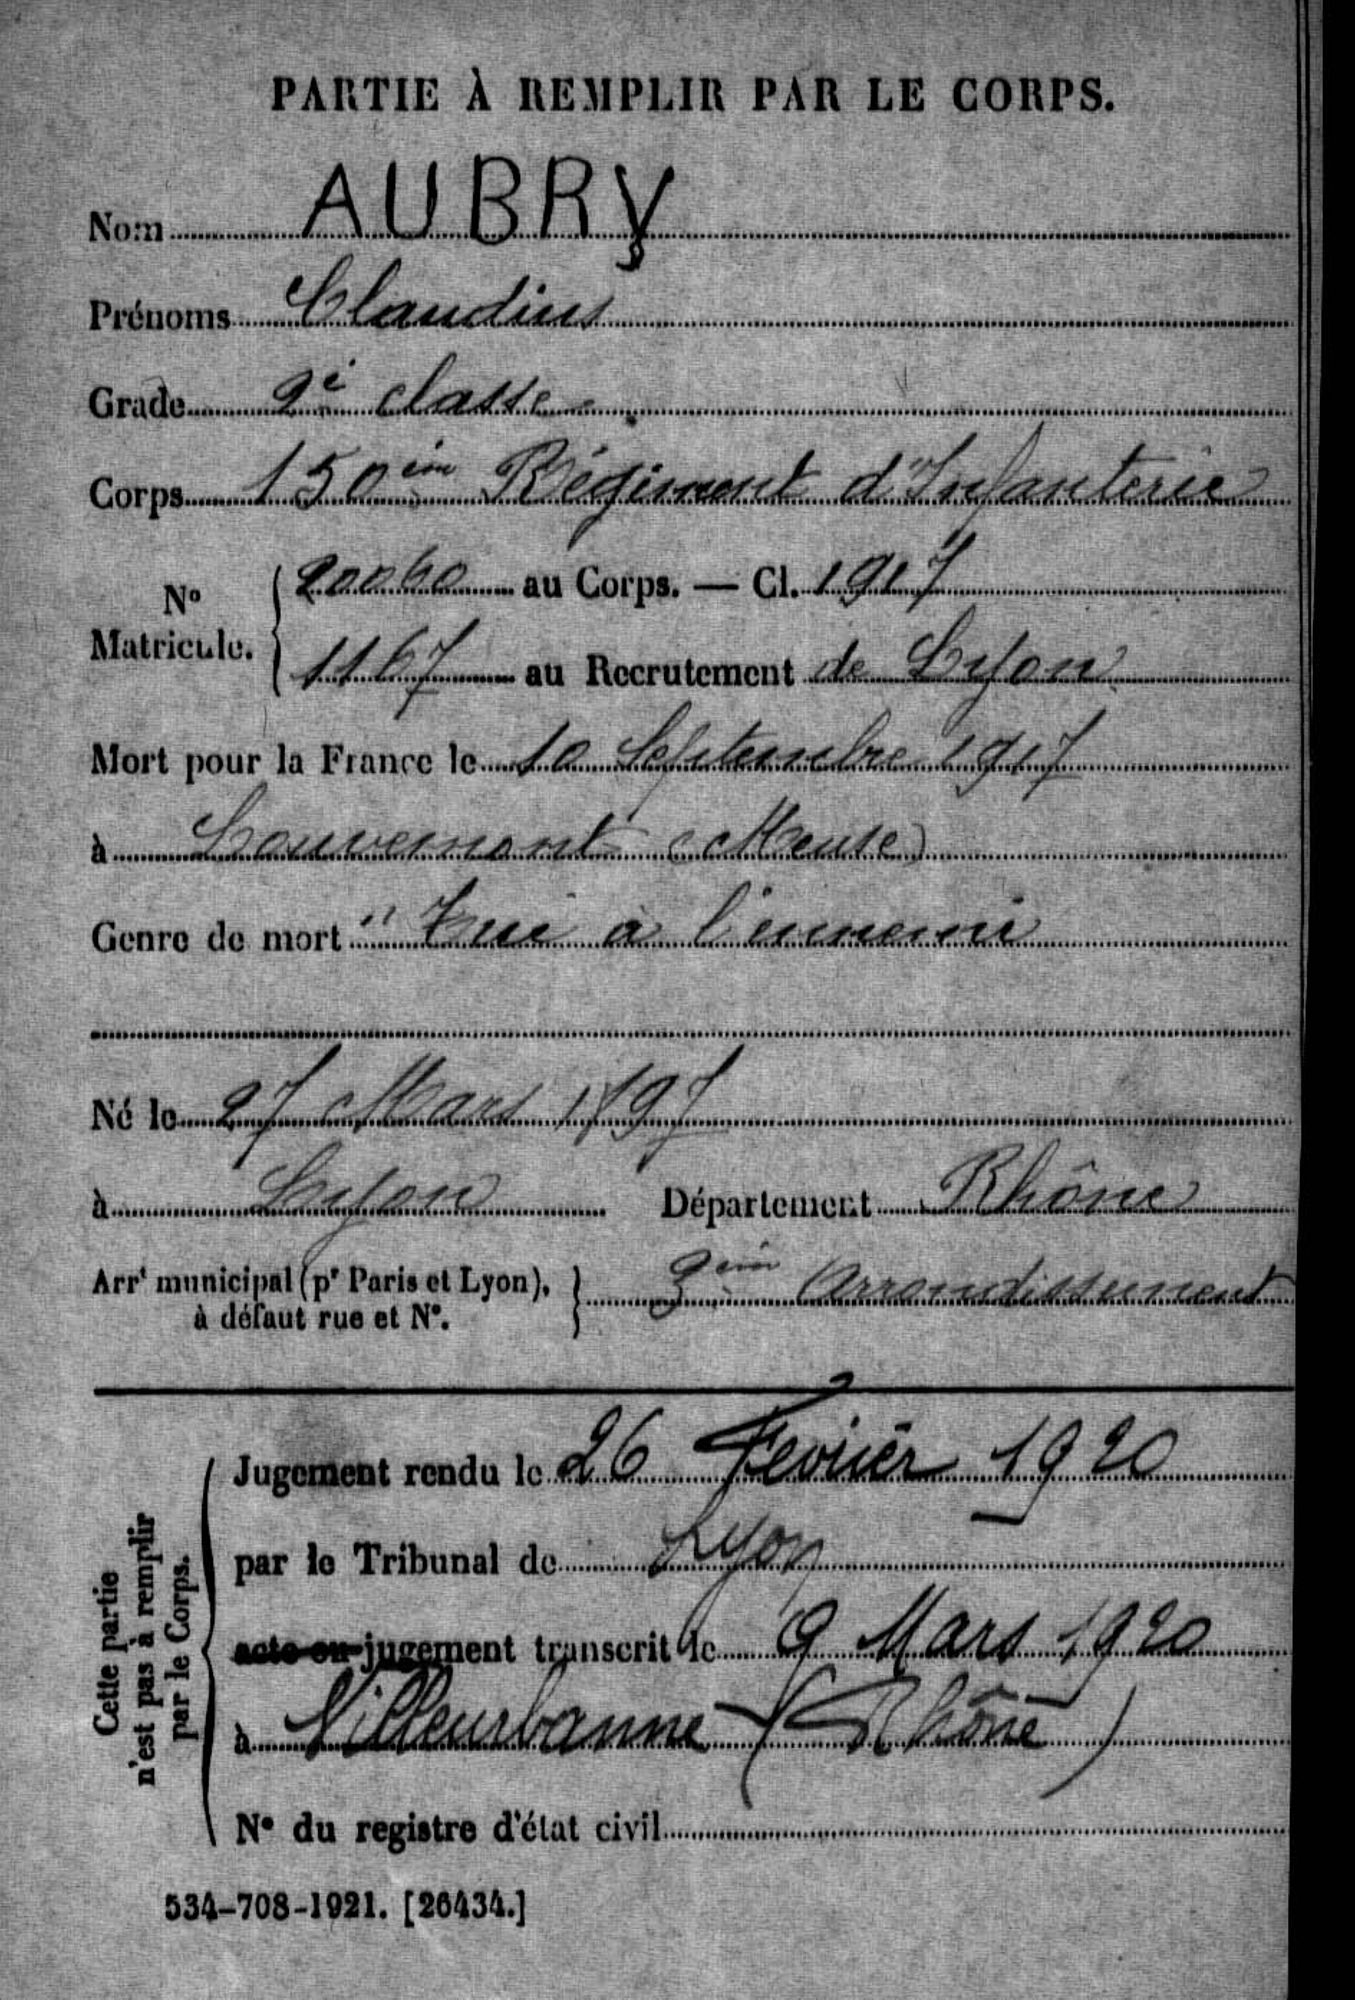 PARTIE À REMPLIR PAR LE CORPS.
Nom AUBRY
Prénoms Claudius
Grade 2e classe
Corps 150èm Régiment d'Infanterie
No Matricule. { 20060 au Corps. — Cl. 1917
1167 au Recrutement de Lyon
Mort pour la France le 10 Septembre 1917
à Louvemont (Meuse)
Genre de mort " Tué à l'ennemi
Né le 27 Mars 1897
à Lyon Département Rhône
Arrt municipal (pr Paris et Lyon), à défaut rue et No. } 3èm Arrondissement
Cette partie n'est pas à remplir par le Corps.
Jugement rendu le 26 Février 1920
par le Tribunal de Lyon
acte ou jugement transcrit le 9 Mars 1920
à Villeurbanne (Rhône)
No du registre d'état civil
534-708-1921. [26434.]